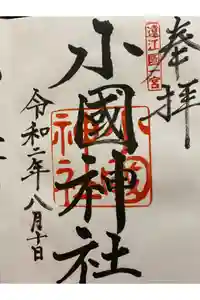 奉拝
遠江國一宮
小國神社
小國神社
令和二年八月十日